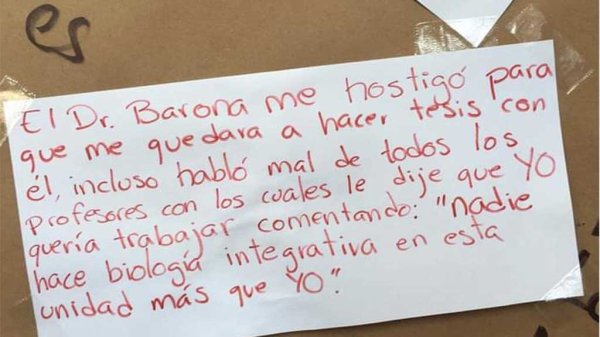 es
El Dr. Barona me hostigó para
que me quedara a hacer tesis con
él, incluso habló mal de todos los
profesores con los cuales le dije que YO
quería trabajar comentando: "nadie
hace biología integrativa en esta
unidad más que YO".